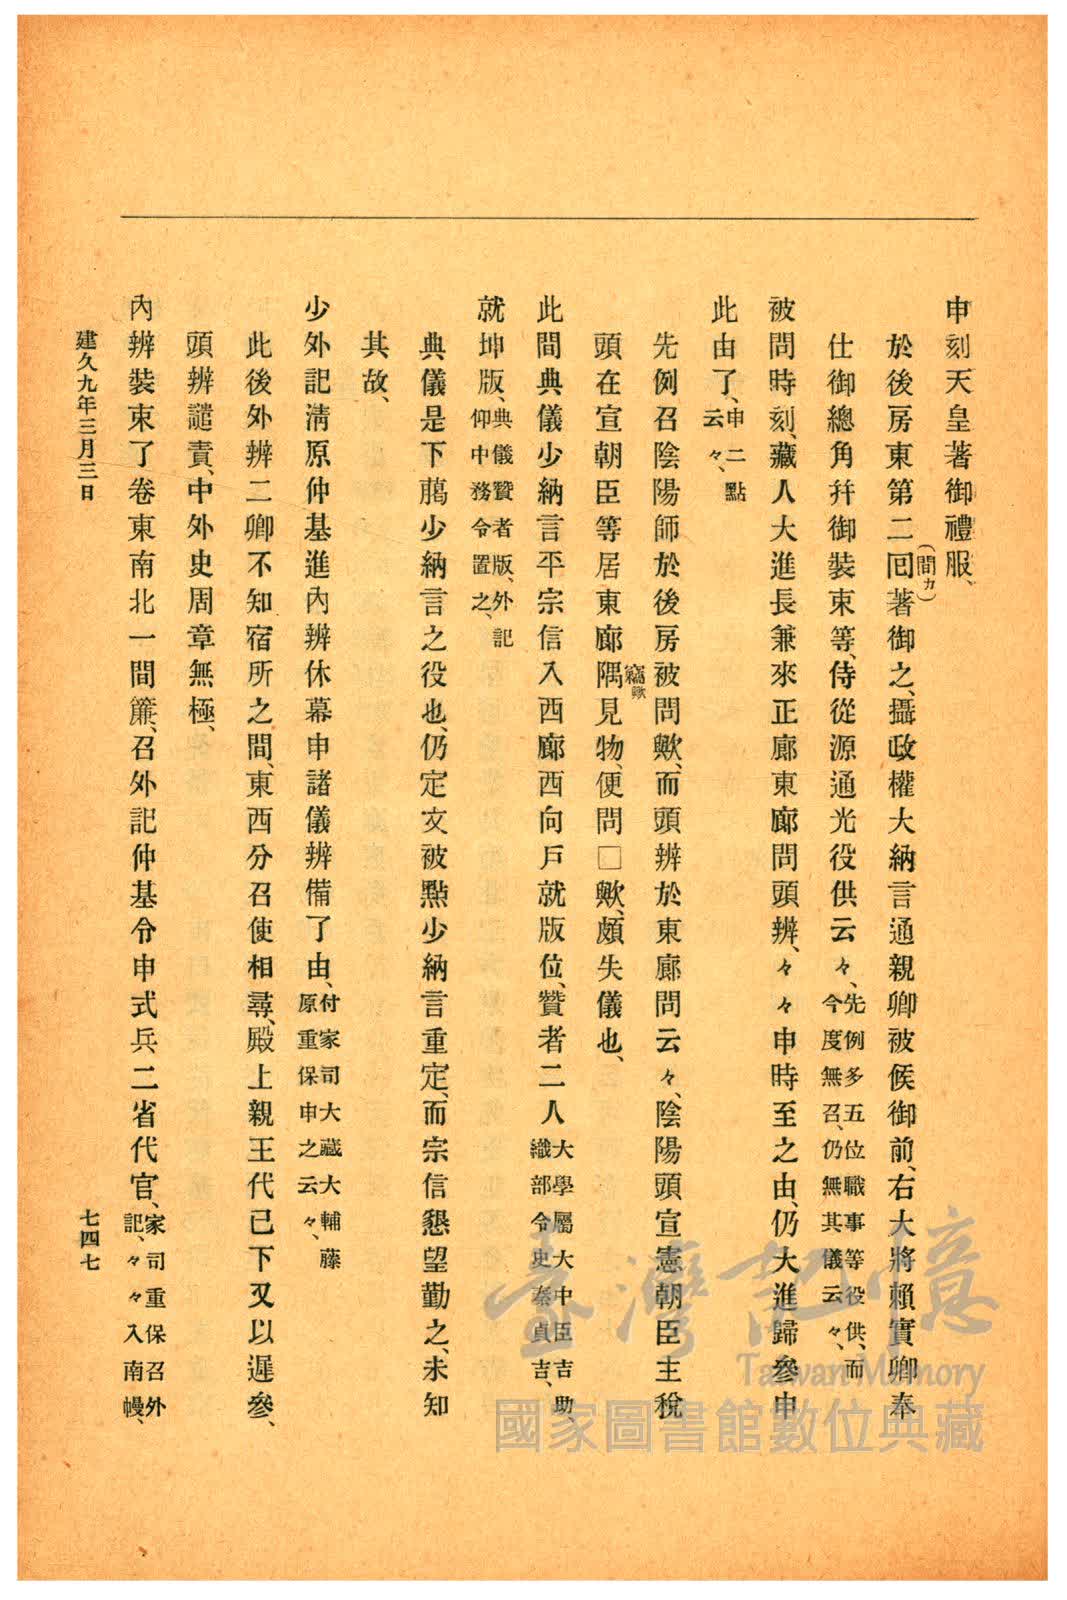 申刻天皇著御禮服、
於後房東第二囘(間カ)著御之、攝政權大納言通親卿被候御前、右大將賴實卿奉
仕御總角幷御裝束等、侍從源通光役供云々、先例多五位職事等役供、而今度無召、仍無其儀云々、
被問時刻、藏人大進長兼來正廊東廊問頭辨、々々申時至之由、仍大進歸參申
此由了、申二點云々、
先例召陰陽師於後房被問歟、而頭辨於東廊問云々、陰陽頭宣憲朝臣主稅
頭在宣朝臣等居東廊隅窺歟見物、便問□歟、頗失儀也、
此間典儀少納言平宗信入西廊西向戶就版位、贊者二人大學屬大中臣吉助、織部令史秦貞吉、
就坤版、典儀贊者版、外記仰中務令置之、
典儀是下﨟少納言之役也、仍定文被點少納言重定、而宗信懇望勤之、未知
其故、
少外記淸原仲基進內辨休幕申諸儀辨備了由、付家司大藏大輔藤原重保申之云々、
此後外辨二卿不知宿所之間、東西分召使相尋、殿上親王代已下又以遲參、
頭辨譴責、中外史周章無極、
內辨裝束了卷東南北一間簾、召外記仲基令申式兵二省代官、家司重保召外記、々々入南幔、
建久九年三月三日
七四七
臺灣記憶
Taiwan Memory
國家圖書館數位典藏